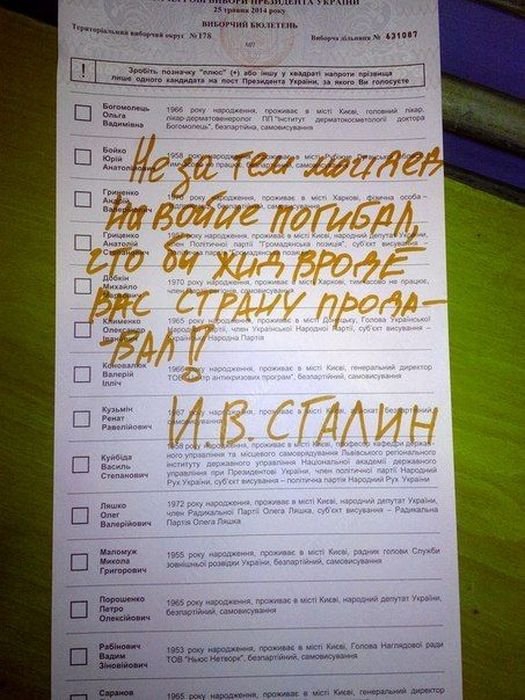 ВИБОРИ ПРЕЗИДЕНТА УКРАЇНИ
25 травня 2014 року
ВИБОРЧИЙ БЮЛЕТЕНЬ
Територіальний виборчий округ №178
МП
Виборча дільниця № 631087
! Зробіть позначку "плюс" (+) або іншу у квадраті напроти прізвища
лише одного кандидата на пост Президента України, за якого Ви голосуєте
Богомолець
Ольга
Вадимівна
1966 року народження, проживає в місті Київ, головний лікар,
лікар-дерматовенеролог ПП "Інститут дерматокосметології доктора
Богомолець", безпартійна, самовисування
Бойко
Юрій
Анатолійович
1958 року народження, проживає в місті
Гриценко
1970 року народження, проживає в місті Харкові, фізична особа –
Гриценко
Анатолій
Степанович
проживає в місті Києві, народний депутат України,
член Політичної партії "Громадянська позиція", суб'єкт висування –
Добкін
Михайло
1970 року народження, проживає в місті Харкові, тимчасово не працює,
Клименко
Олександр
1965 року народження, проживає в місті Донецьку, Голова Української
Народної партії, член Української Народної Партії, суб'єкт висування –
Українська Народна Партія
Коновалюк
Валерій
Ілліч
1966 року народження, проживає в місті Києві, генеральний директор
ТОВ "Центр антикризових програм", безпартійний, самовисування
Кузьмін
Ренат
Равелійович
1967 року народження, проживає в місті Києві,
самовисування
Куйбіда
Василь
Степанович
1958 року народження, проживає в місті Києві, професор кафедри держав-
ного управління та місцевого самоврядування Львівського регіонального
інституту державного управління Національної академії державного
управління при Президентові України, член політичної партії Народний
Рух України, суб'єкт висування – політична партія Народний Рух України
Ляшко
Олег
Валерійович
1972 року народження, проживає в місті Києві, народний депутат України,
член Радикальної Партії Олега Ляшка, суб'єкт висування – Радикальна
Партія Олега Ляшка
Маломуж
Микола
Григорович
1955 року народження, проживає в місті Києві, радник голови Служби
зовнішньої розвідки України, безпартійний, самовисування
Порошенко
Петро
Олексійович
1965 року народження, проживає в місті Києві, народний депутат України,
безпартійний, самовисування
Рабінович
Вадим
Зіновійович
1953 року народження, проживає в місті Києві, Голова Наглядової ради
ТОВ "Ньюс Нетворк", безпартійний, самовисування
Саранов
1965 року народження, проживає в місті Києві, генеральний директор
Не за тем мой дед
на войне погибал,
что би хид вроде
вас страну прода-
-вал!
И.В. Сталин